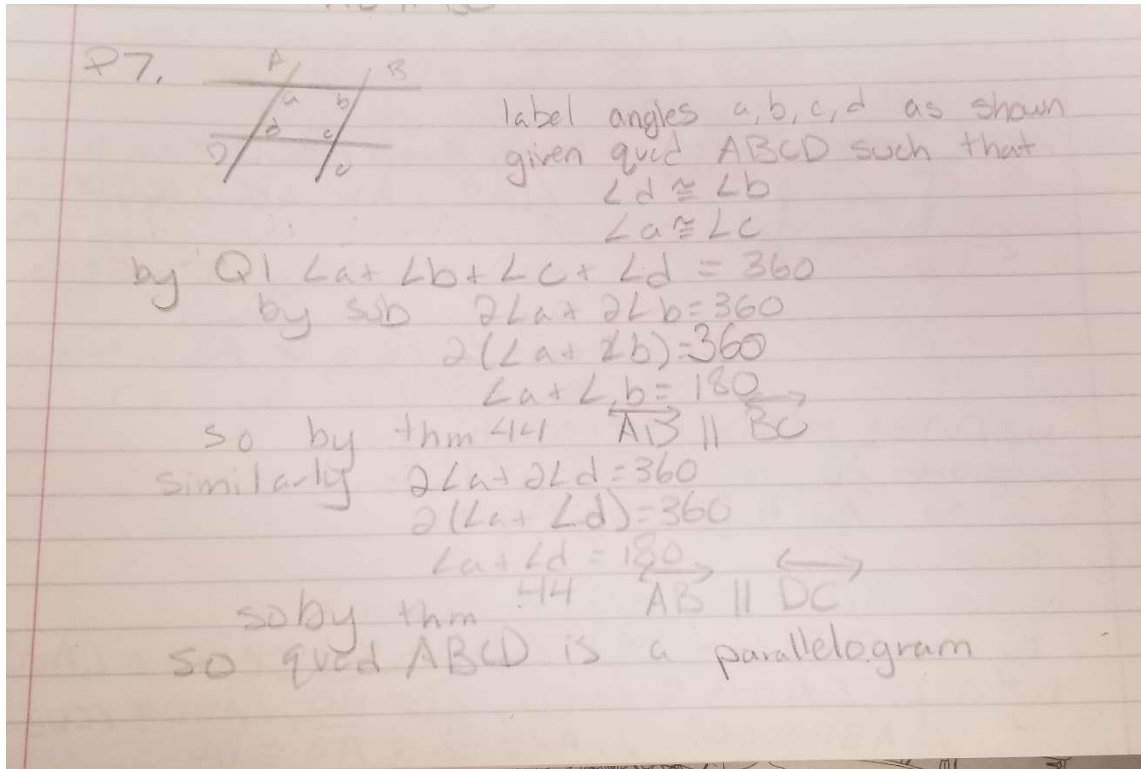 P7.
A B
a b
d c
D c
label angles a, b, c, d as shown
given quad ABCD such that
∠d ≅ ∠b
∠a ≅ ∠c
by Q1 ∠a + ∠b + ∠c + ∠d = 360
by sub 2∠a + 2∠b = 360
2(∠a + ∠b) = 360
∠a + ∠b = 180
so by thm 44 AB || BC
similarly 2∠a + 2∠d = 360
2(∠a + ∠d) = 360
∠a + ∠d = 180
so by thm 44 AB || DC
so quad ABCD is a parallelogram